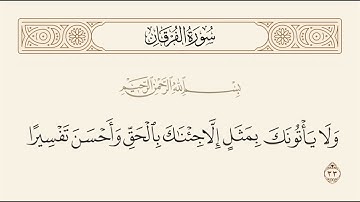 سُورَةُ الفُرْقَانِ
بِسْمِ اللَّهِ الرَّحْمَٰنِ الرَّحِيمِ
وَلَا يَأْتُونَكَ بِمَثَلٍ إِلَّا جِئْنَاكَ بِالْحَقِّ وَأَحْسَنَ تَفْسِيرًا
٣٣